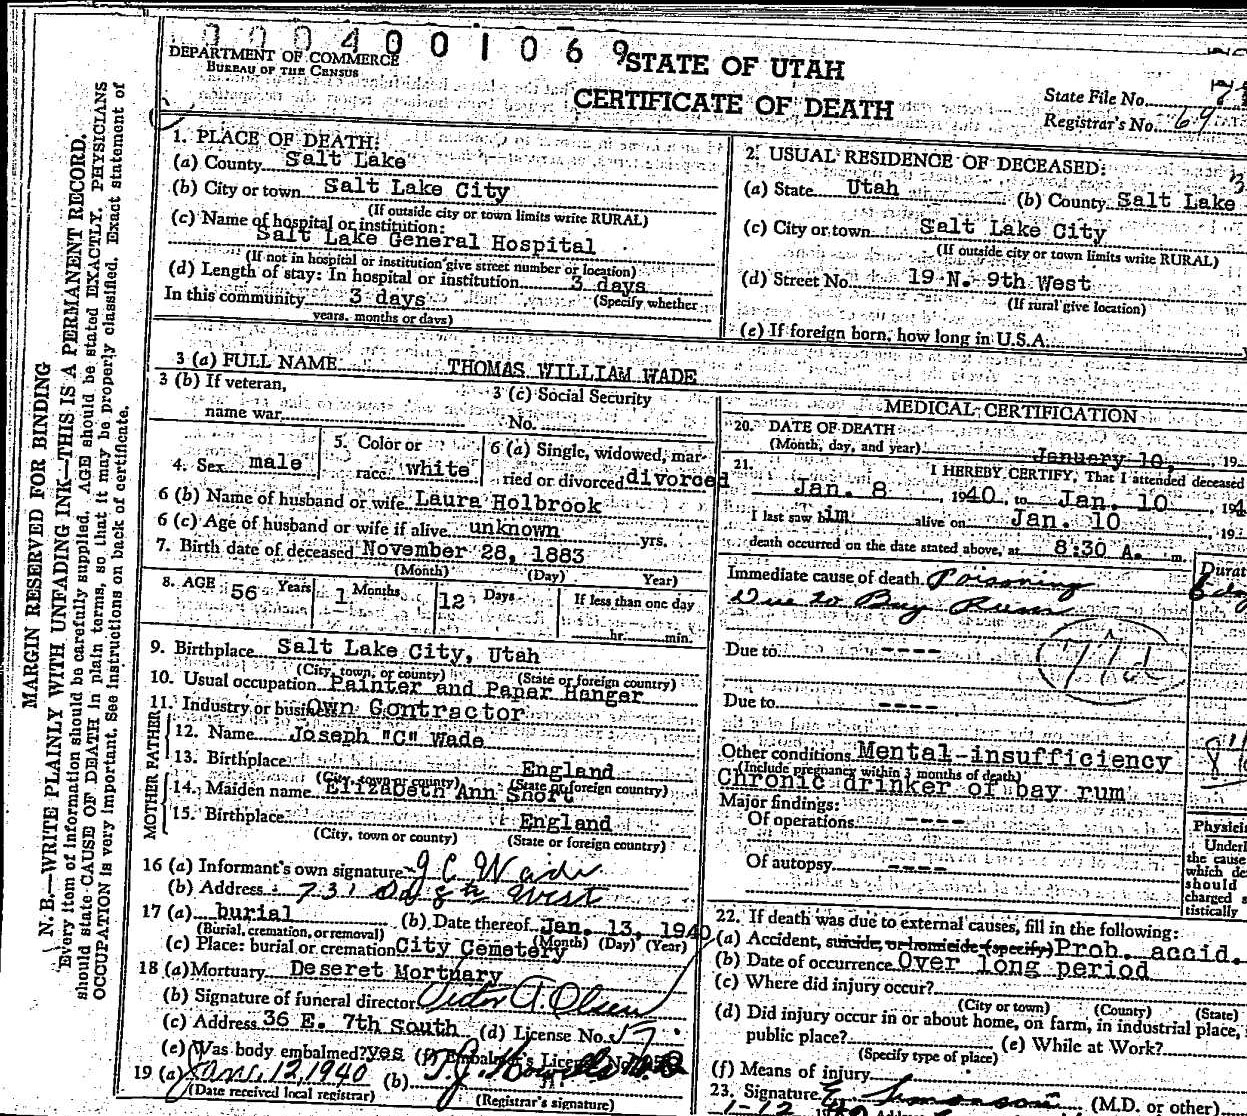 0004001069
DEPARTMENT OF COMMERCE
BUREAU OF THE CENSUS
STATE OF UTAH
CERTIFICATE OF DEATH
State File No.
Registrar's No. 69
MARGIN RESERVED FOR BINDING
N. B.—WRITE PLAINLY WITH UNFADING INK—THIS IS A PERMANENT RECORD.
Every item of information should be carefully supplied. AGE should be stated EXACTLY. PHYSICIANS
should state CAUSE OF DEATH in plain terms, so that it may be properly classified. Exact statement of
OCCUPATION is very important. See instructions on back of certificate.
1. PLACE OF DEATH:
(a) County Salt Lake
(b) City or town Salt Lake City
(If outside city or town limits write RURAL)
(c) Name of hospital or institution:
Salt Lake General Hospital
(If not in hospital or institution give street number or location)
(d) Length of stay: In hospital or institution 3 days
In this community 3 days (Specify whether
years, months or days)
2. USUAL RESIDENCE OF DECEASED:
(a) State Utah (b) County Salt Lake
(c) City or town Salt Lake City
(If outside city or town limits write RURAL)
(d) Street No. 19 N. 9th West
(If rural give location)
(e) If foreign born, how long in U.S.A.
3 (a) FULL NAME THOMAS WILLIAM WADE
3 (b) If veteran,
name war
3 (c) Social Security
No.
4. Sex male
5. Color or
race white
6 (a) Single, widowed, mar-
ried or divorced divorced
6 (b) Name of husband or wife Laura Holbrook
6 (c) Age of husband or wife if alive unknown yrs.
7. Birth date of deceased November 28, 1883
(Month) (Day) Year)
8. AGE 56 Years 1 Months 12 Days If less than one day
hr. min.
9. Birthplace Salt Lake City, Utah
(City, town, or county) (State or foreign country)
10. Usual occupation Painter and Papar Hanger
11. Industry or business Own Contractor
FATHER
12. Name Joseph "C" Wade
13. Birthplace England
(City, town or county) (State or foreign country)
MOTHER
14. Maiden name Elizabeth Ann Short
15. Birthplace England
(City, town or county) (State or foreign country)
16 (a) Informant's own signature J C Wade
(b) Address 731 So 8th West
17 (a) burial (b) Date thereof Jan. 13, 1940
(Burial, cremation, or removal) (Month) (Day) (Year)
(c) Place: burial or cremation City Cemetery
18 (a) Mortuary Deseret Mortuary
(b) Signature of funeral director Victor T. Olsen
(c) Address 36 E. 7th South (d) License No. 17
(e) Was body embalmed? yes (f) Embalmer's License No.
19 (a) Jan. 12, 1940 (b)
(Date received local registrar) (Registrar's signature)
MEDICAL CERTIFICATION
20. DATE OF DEATH
(Month, day, and year) January 10, 19
21. I HEREBY CERTIFY, That I attended deceased
Jan. 8, 1940, to Jan. 10, 194
I last saw him alive on Jan. 10, 19
death occurred on the date stated above, at 8:30 A. m.
Immediate cause of death Poisoning
Due to Bay Rum
Durat
Due to ----
Due to ----
Other conditions Mental-insufficiency
(Include pregnancy within 3 months of death)
Chronic drinker of bay rum
Major findings:
Of operations ----
Of autopsy ----
Physici
Underl
the cause
which de
should
charged s
tistically
22. If death was due to external causes, fill in the following:
(a) Accident, suicide, or homicide (specify) Prob. accid.
(b) Date of occurrence Over long period
(c) Where did injury occur?
(City or town) (County) (State)
(d) Did injury occur in or about home, on farm, in industrial place,
public place? (e) While at Work?
(Specify type of place)
(f) Means of injury
23. Signature E. Simonson (M.D. or other)
1-12